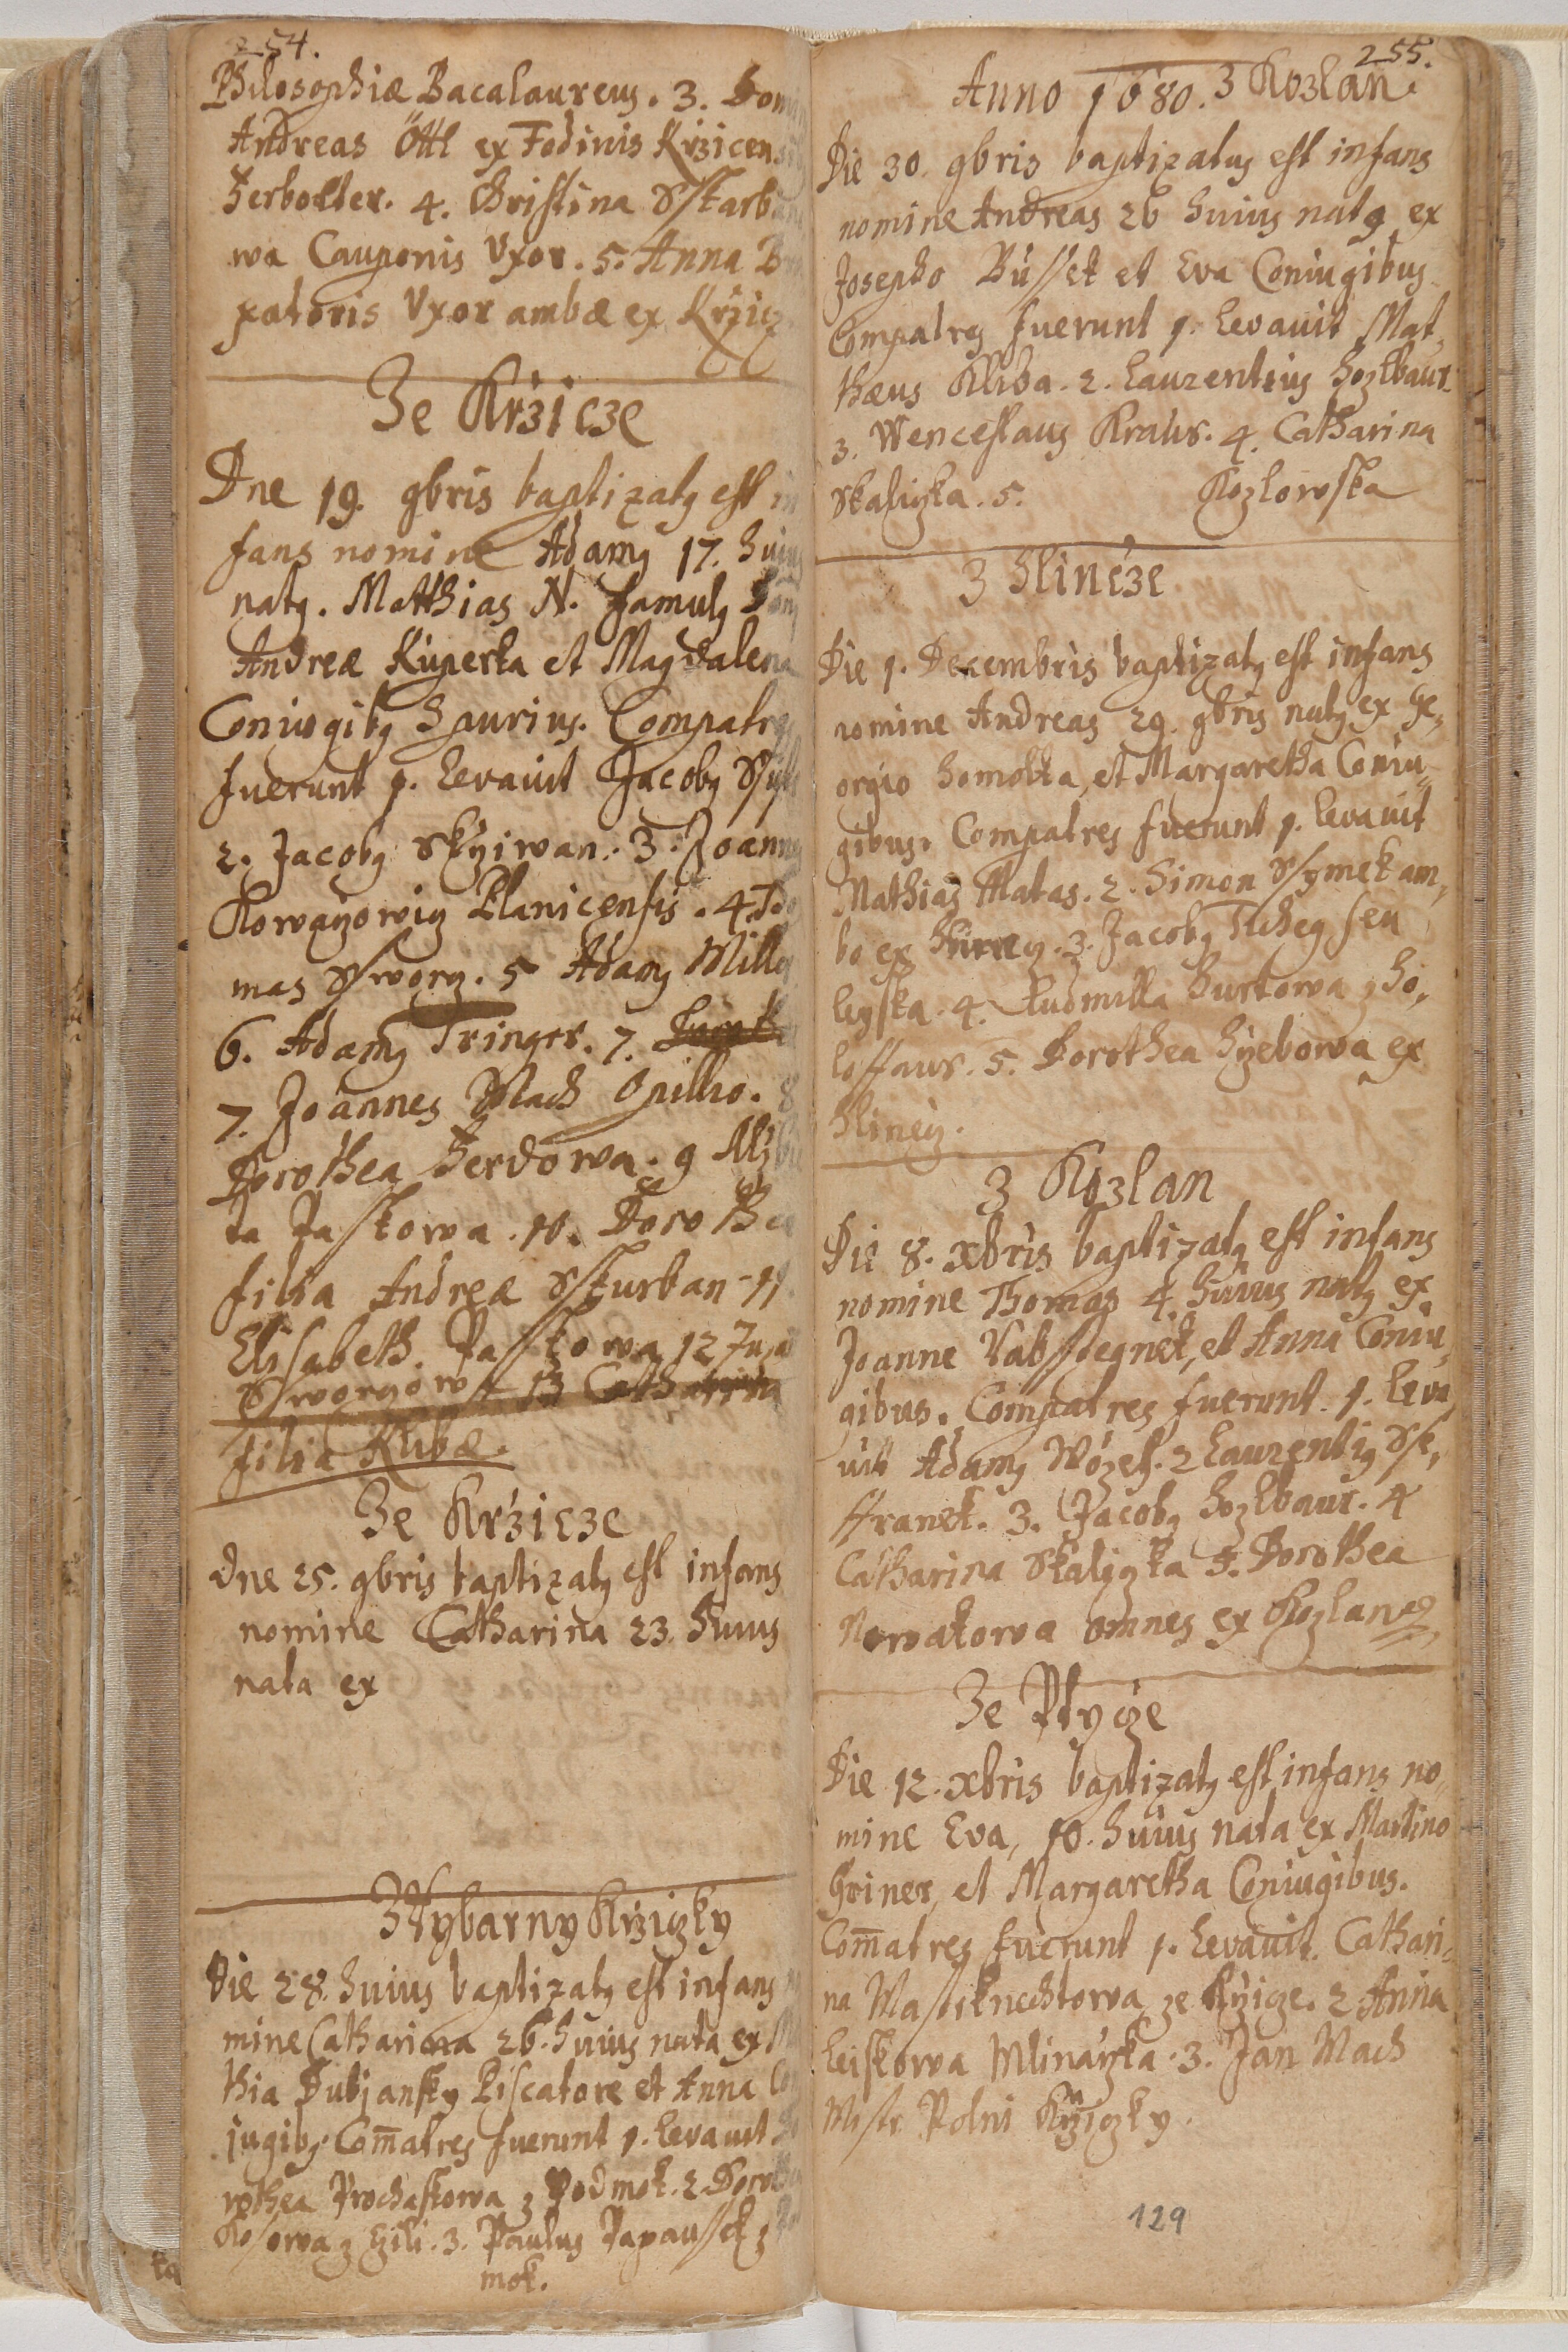 254.
Philosophiæ Bacalaureus. 3. Dom
Andreas Öttl ex Fodinis Krzicens
4. Christina Sskarb
wa Cauponis Uxor. 5. Anna
patoris Uxor ambæ ex Krzicz
Ze Krziczе
Dne 19. 9bris baptizatq est in
fans nomine Adamq 17. huius
natq. Matthias N. famulq
Andreæ Kuperta et Magdalena
Coniugibq Compatres
fuerunt 1. Levavit Jacobq
2. Jacobq 3. Joannes
Planicensis. 4. Tho
mas Ssworcz. 5 Adamq
6. Adamq Tringer. 7.
7. Joannes Wlach Opilio. 8
Dorothea Herdowa. 9
ta Passkowa. 10. Dorothea
filia Andreæ Sskurban 11.
Elisabeth Passkowa 12
13 Catharina
filia Kubæ.
Ze Krzicze
Dne 25. 9bris baptizatq est infans
nomine Catharina 23. huius
nata ex
Z Rybarny Krziczky
Die 28. huius baptizatq est infans
mine Catharina 26. huius nata ex
thia Dubjansky Piscatore et Anna
jugibq. Com̄atres fuerunt 1. levavit
rothea Prochaskowa z Podmok. 2. Dorothea
3. Paulus Papaussek z
mok.
255.
Anno 1680. Z Kozlan.
Die 30. 9bris baptizatus est infans
nomine Andreas 26 huius natq ex
Josepho Bussek et Eva Coniugibus
Compatres fuerunt 1. Levavit Mat,
thæus Kliba. 2. Laurentius Hozlbaur.
3. Wenceslaus Kraus. 4. Catharina
Skaliczka. 5. Kozlowska
Z Hlincze
Die 1. Decembris baptizatq est infans
nomine Andreas 29. 9bris natq ex Ge,
orgio Homolka, et Margaretha Coniu,
gibus. Compatres fuerunt 1. levavit
Mathias Matas. 2. Simon Ssymek am,
bo ex 3. Jacobq
4. Ludmilla Hurtowa z Ho,
5. Dorothea ex
Hlinecz.
Z Kozlan
Die 8. xbris baptizatq est infans
nomine Thomas 4. huius natq ex
Joanne et Anna Coniu,
gibus. Compatres fuerunt. 1. Leva
vit Adamq 2 Laurentiq Sse,
ffranek. 3. Jacobq Hozlbaur. 4
Catharina Skaliczka 5. Dorothea
Nowakowa omnes ex Kozlan
Ze Ptycze
Die 12. xbris baptizatq est infans no,
mine Eva, 10. huius nata ex Martino
Griner, et Margaretha Coniugibus.
Com̄atres fuerunt 1. Levavit. Cathari,
na ze Krzicze. 2 Anna
Leiskowa Mlinarzka. 3. Jan Wach
Mistr Polni Krziczky.
129